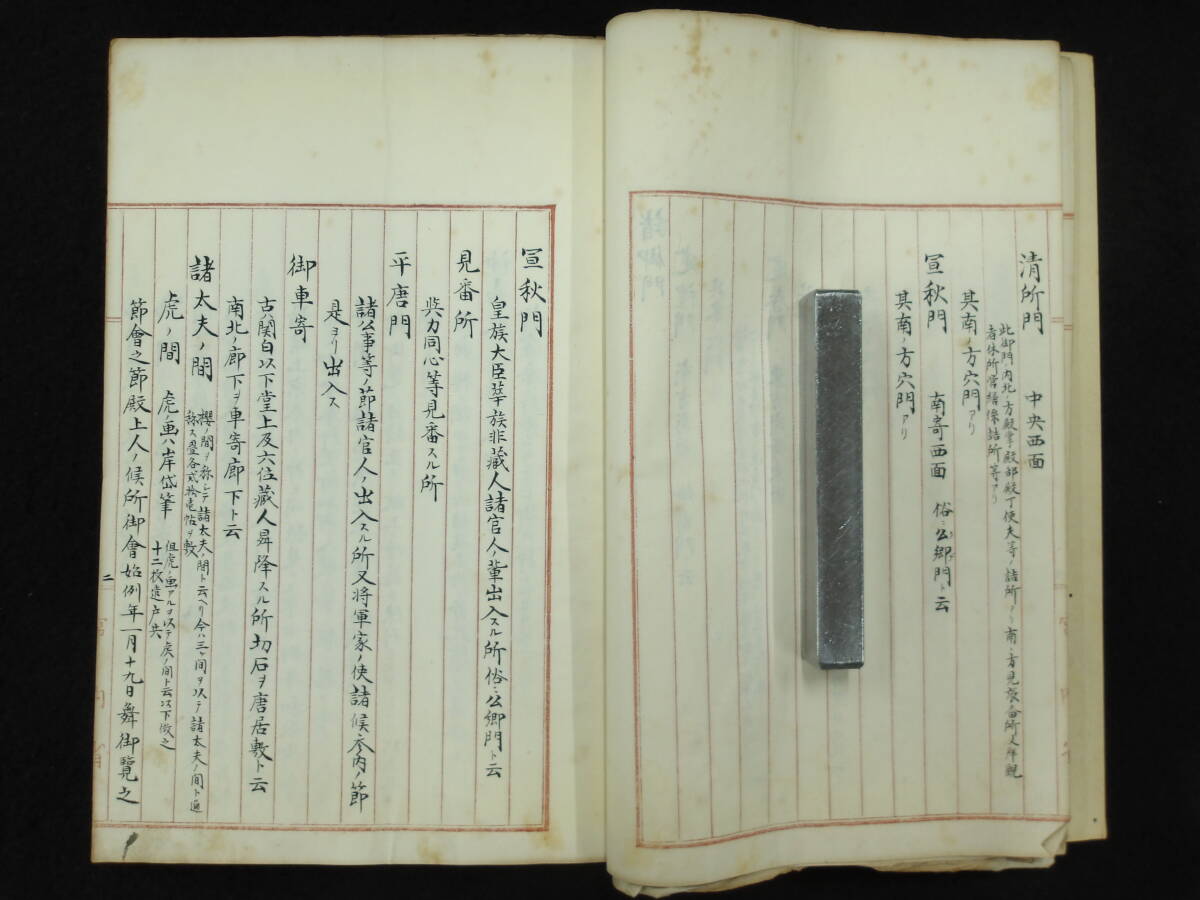 清所門　中央西面
此御門内北ノ方殿掌殿部殿丁使夫等ノ諸所アリ南ノ方見張番所又拝観
者休所営繕係詰所等アリ
其南ノ方穴門アリ
宣秋門　南寄西面　俗ニ公卿門ト云
其南ノ方穴門アリ
宣秋門
皇族大臣華族非蔵人諸官人ノ輩出入スル所俗ニ公卿門ト云
見番所
與力同心等見番スル所
平唐門
諸公事等ノ節諸官人ノ出入スル所又将軍家ノ使諸候参内ノ節
是ヨリ出入ス
御車寄
古ハ関白以下堂上及六位蔵人昇降スル所切石ヲ唐居敷ト云
南北ノ廊下ヲ車寄廊下ト云
諸太夫ノ間
櫻ノ間ヲ称シテ諸太夫ノ間ト云ヘリ今ハ三ヶ間ヲ以テ諸太夫ノ間ト通
称ス畳各弐拾壱帖ヲ敷
虎ノ間　虎ノ画ハ岸岱筆
但虎ノ画アルヲ以テ虎ノ間ト云以下倣之
十二枚遣戸共
節會之節殿上人ノ候所御會始例年一月十九日舞御覧之
二